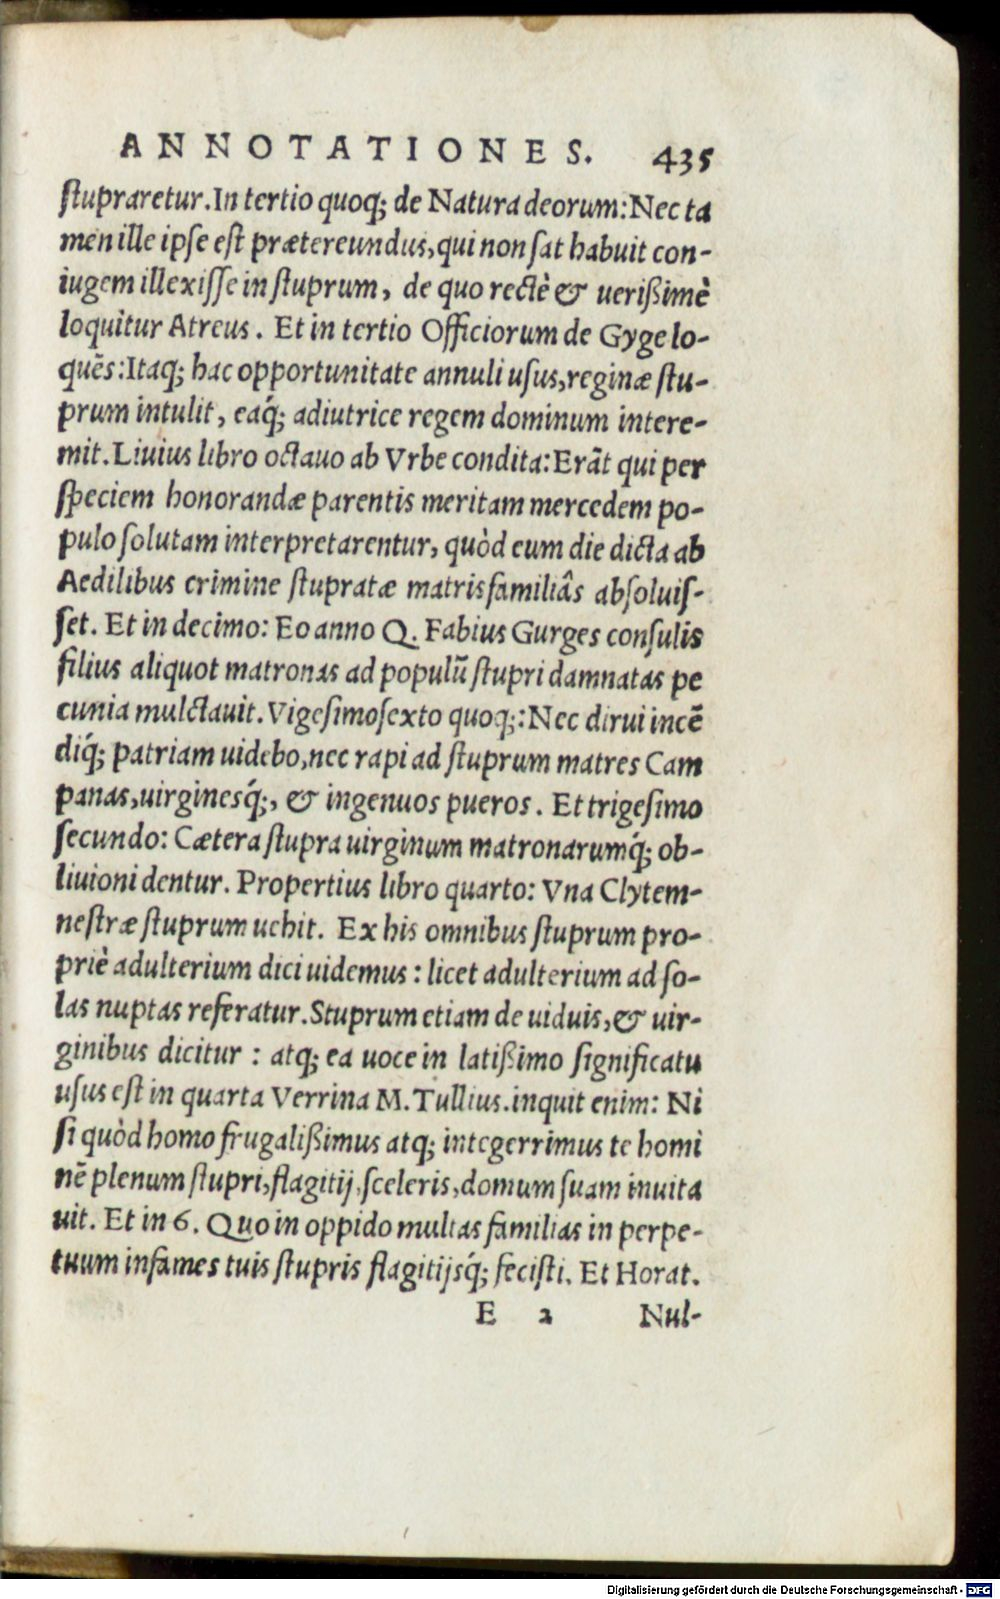 ANNOTATIONES. 435
stupraretur. In tertio quoq; de Natura deorum: Nec ta
men ille ipse est prætereundus, qui non sat habuit con-
iugem illexisse in stuprum, de quo rectè & uerißimè
loquitur Atreus. Et in tertio Officiorum de Gyge lo-
quẽs: Itaq; hac opportunitate annuli usus, reginæ stu-
prum intulit, eaq́; adiutrice regem dominum intere-
mit. Liuius libro octauo ab Vrbe condita: Erãt qui per
speciem honorandæ parentis meritam mercedem po-
pulo solutam interpretarentur, quòd eum die dicta ab
Aedilibus crimine stupratæ matrisfamiliâs absoluis-
set. Et in decimo: Eo anno Q. Fabius Gurges consulis
filius aliquot matronas ad populũ stupri damnatas pe
cunia mulctauit. Vigesimosexto quoq;: Nec dirui incẽ
diq́; patriam uidebo, nec rapi ad stuprum matres Cam
panas, uirginesq́;, & ingenuos pueros. Et trigesimo
secundo: Cætera stupra uirginum matronarumq́; ob-
liuioni dentur. Propertius libro quarto: Vna Clytem-
nestræ stuprum uehit. Ex his omnibus stuprum pro-
priè adulterium dici uidemus: licet adulterium ad so-
las nuptas referatur. Stuprum etiam de uiduis, & uir-
ginibus dicitur: atq; ea uoce in latißimo significatu
usus est in quarta Verrina M. Tullius. inquit enim: Ni
si quòd homo frugalißimus atq; integerrimus te homi
nẽ plenum stupri, flagitij, sceleris, domum suam inuita
uit. Et in 6. Quo in oppido multas familias in perpe-
tuum infames tuis stupris flagitijsq́; fecisti. Et Horat.
E 2 Nul-
Digitalisierung gefördert durch die Deutsche Forschungsgemeinschaft - DFG